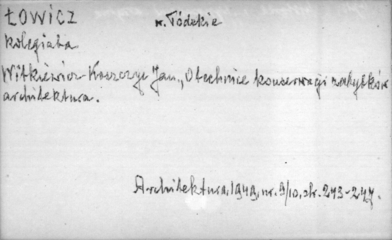 ŁOWICZ w. Łódzkie
Kolegiata
Witkiewicz-Koszczyc Jan, O technice konserwacji zabytków
architektura.
Architektura, 1949, nr. 9/10, str. 243-247.